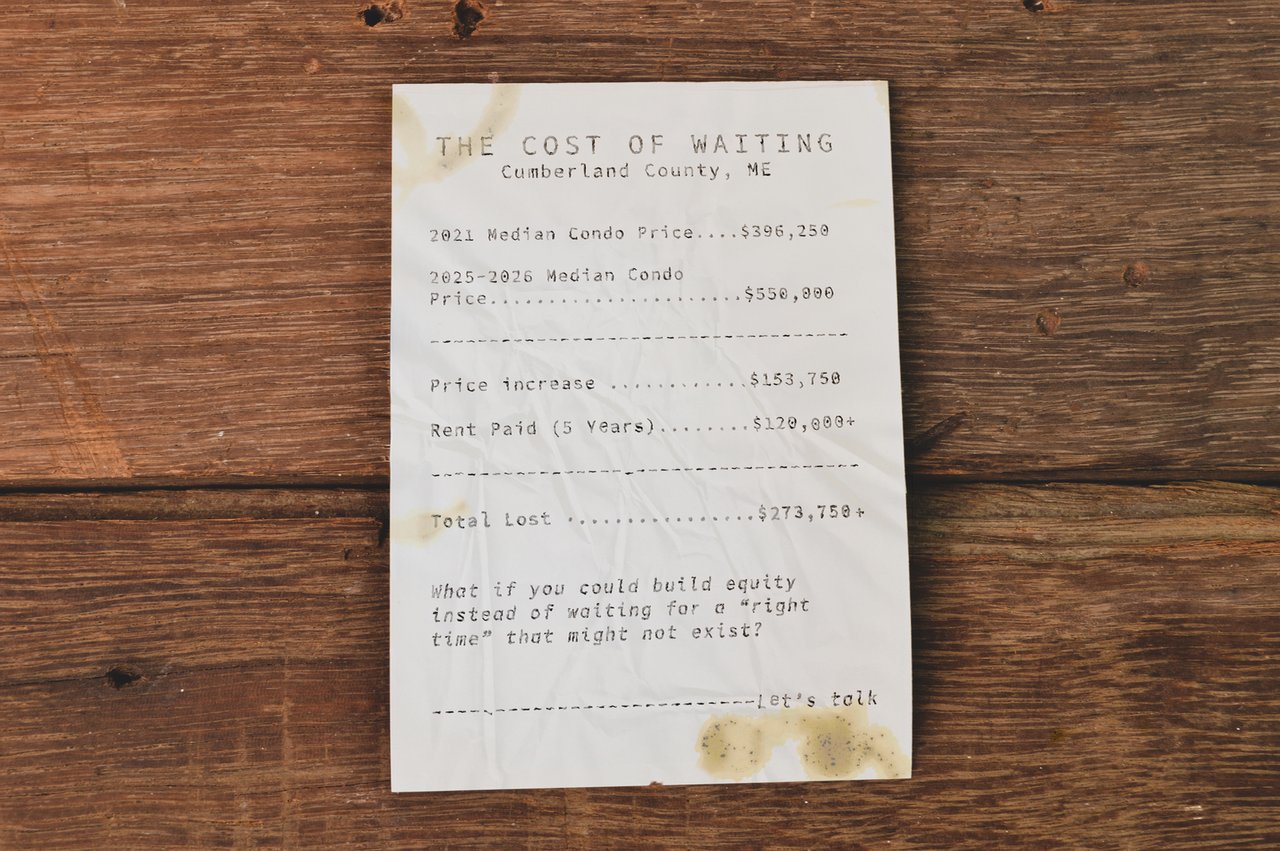 THE COST OF WAITING
Cumberland County, ME
2021 Median Condo Price....$396,250
2025-2026 Median Condo
Price......................$550,000
-------------------------------------------
Price increase ............$153,750
Rent Paid (5 Years)........$120,000+
-------------------------------------------
Total Lost ................$273,750+
What if you could build equity
instead of waiting for a “right
time” that might not exist?
---------------------------------Let's talk